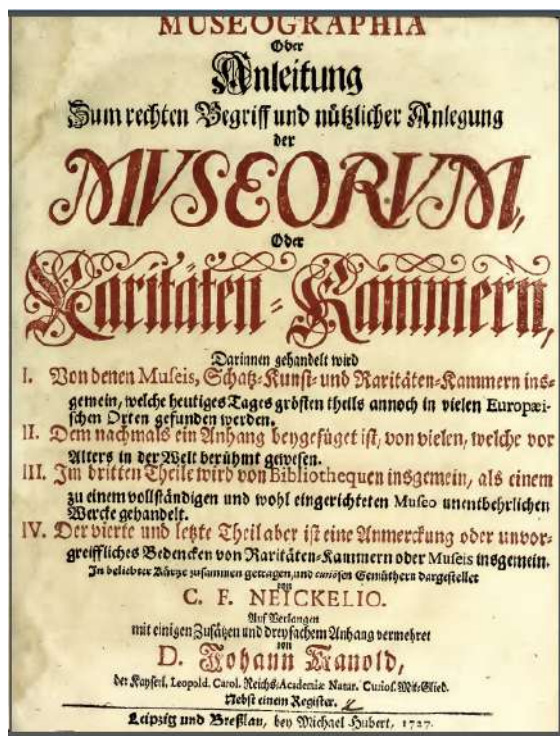 MUSEOGRAPHIA
Oder
Anleitung
Zum rechten Begriff und nützlicher Anlegung
der
MVSEORVM,
Oder
Raritäten-Kammern,
Darinnen gehandelt wird
I. Von denen Museis, Schatz-Kunst- und Raritäten-Kammern ins-
gemein, welche heutiges Tages grösten theils annoch in vielen Europæi-
schen Orten gefunden werden.
II. Dem nachmals ein Anhang beygefüget ist, von vielen, welche vor
Alters in der Welt berühmt gewesen.
III. Im dritten Theile wird von Bibliothequen insgemein, als einem
zu einem vollständigen und wohl eingerichteten Museo unentbehrlichen
Wercke gehandelt.
IV. Der vierte und letzte Theil aber ist eine Anmerckung oder unvor-
greiffliches Bedencken von Raritäten-Kammern oder Museis insgemein.
In beliebter Kürtze zusammen getragen, und curiösen Gemüthern dargestellet
von
C. F. NEICKELIO.
Auf Verlangen
mit einigen Zusätzen und dreyfachem Anhang vermehret
von
D. Johann Kanold,
der Kayserl. Leopold. Carol. Reichs-Academiæ Natur. Curios. Mit-Glied.
Nebst einem Register.
Leipzig und Breßlau, bey Michael Hubert, 1727.